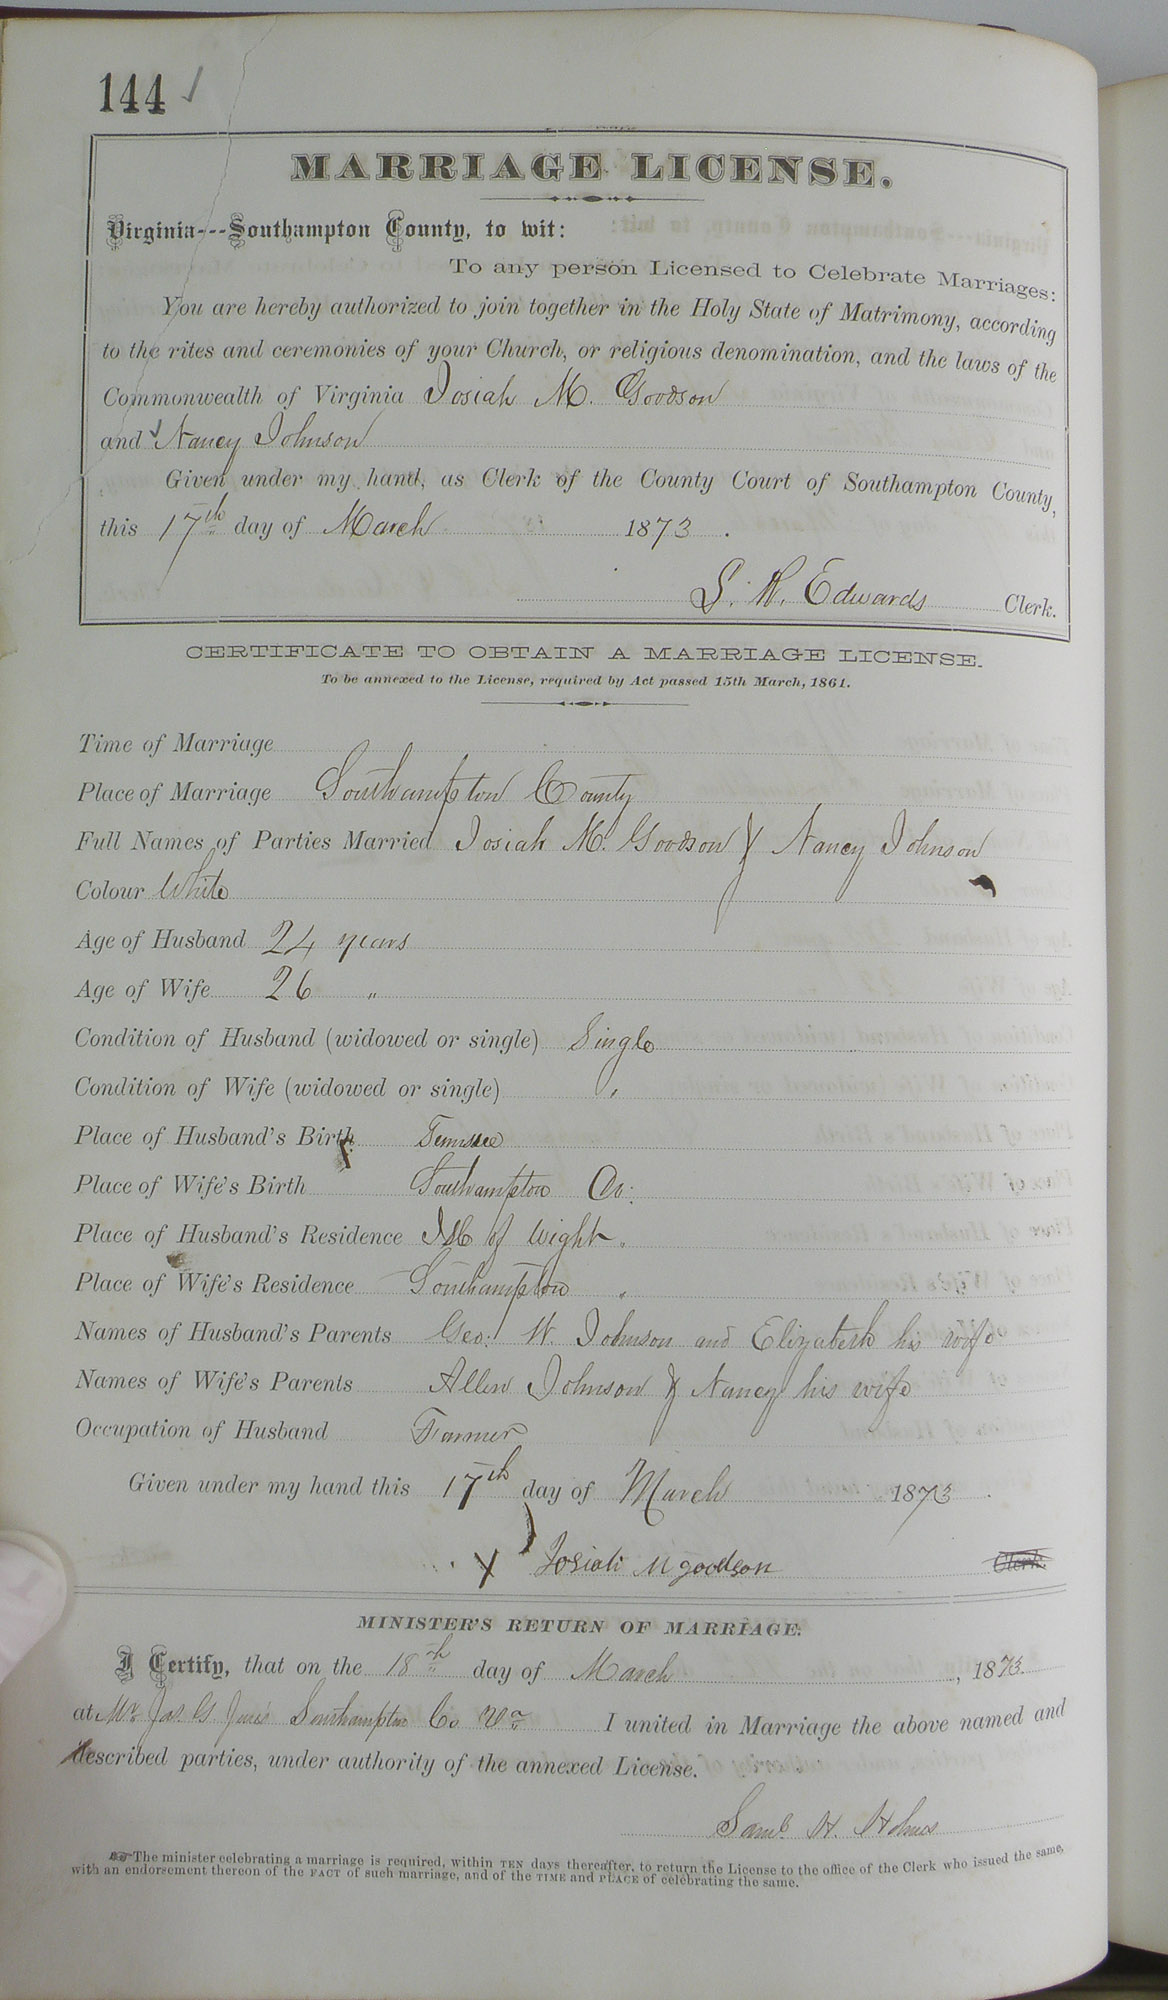 144 ✓
MARRIAGE LICENSE.
Virginia---Southampton County, to wit:
To any person Licensed to Celebrate Marriages:
You are hereby authorized to join together in the Holy State of Matrimony, according
to the rites and ceremonies of your Church, or religious denomination, and the laws of the
Commonwealth of Virginia Josiah M. Goodson
and Nancy Johnson
Given under my hand, as Clerk of the County Court of Southampton County,
this 17th day of March 1873.
L. R. Edwards Clerk.
CERTIFICATE TO OBTAIN A MARRIAGE LICENSE.
To be annexed to the License, required by Act passed 15th March, 1861.
Time of Marriage
Place of Marriage Southampton County
Full Names of Parties Married Josiah M. Goodson & Nancy Johnson
Colour White
Age of Husband 24 years
Age of Wife 26 "
Condition of Husband (widowed or single) Single
Condition of Wife (widowed or single) "
Place of Husband's Birth Tennssee
Place of Wife's Birth Southampton Co:
Place of Husband's Residence Isle of Wight "
Place of Wife's Residence Southampton "
Names of Husband's Parents Geo: W. Johnson and Elizabeth his wife
Names of Wife's Parents Allen Johnson & Nancy his wife
Occupation of Husband Farmer
Given under my hand this 17th day of March 1873.
X Josiah M goodson Clerk.
MINISTER'S RETURN OF MARRIAGE.
I Certify, that on the 18th day of March, 1873.
at Mr Jas. G Southampton Co Va I united in Marriage the above named and
described parties, under authority of the annexed License.
Saml. H. Holmes
The minister celebrating a marriage is required, within TEN days thereafter, to return the License to the office of the Clerk who issued the same,
with an endorsement thereon of the FACT of such marriage, and of the TIME and PLACE of celebrating the same.